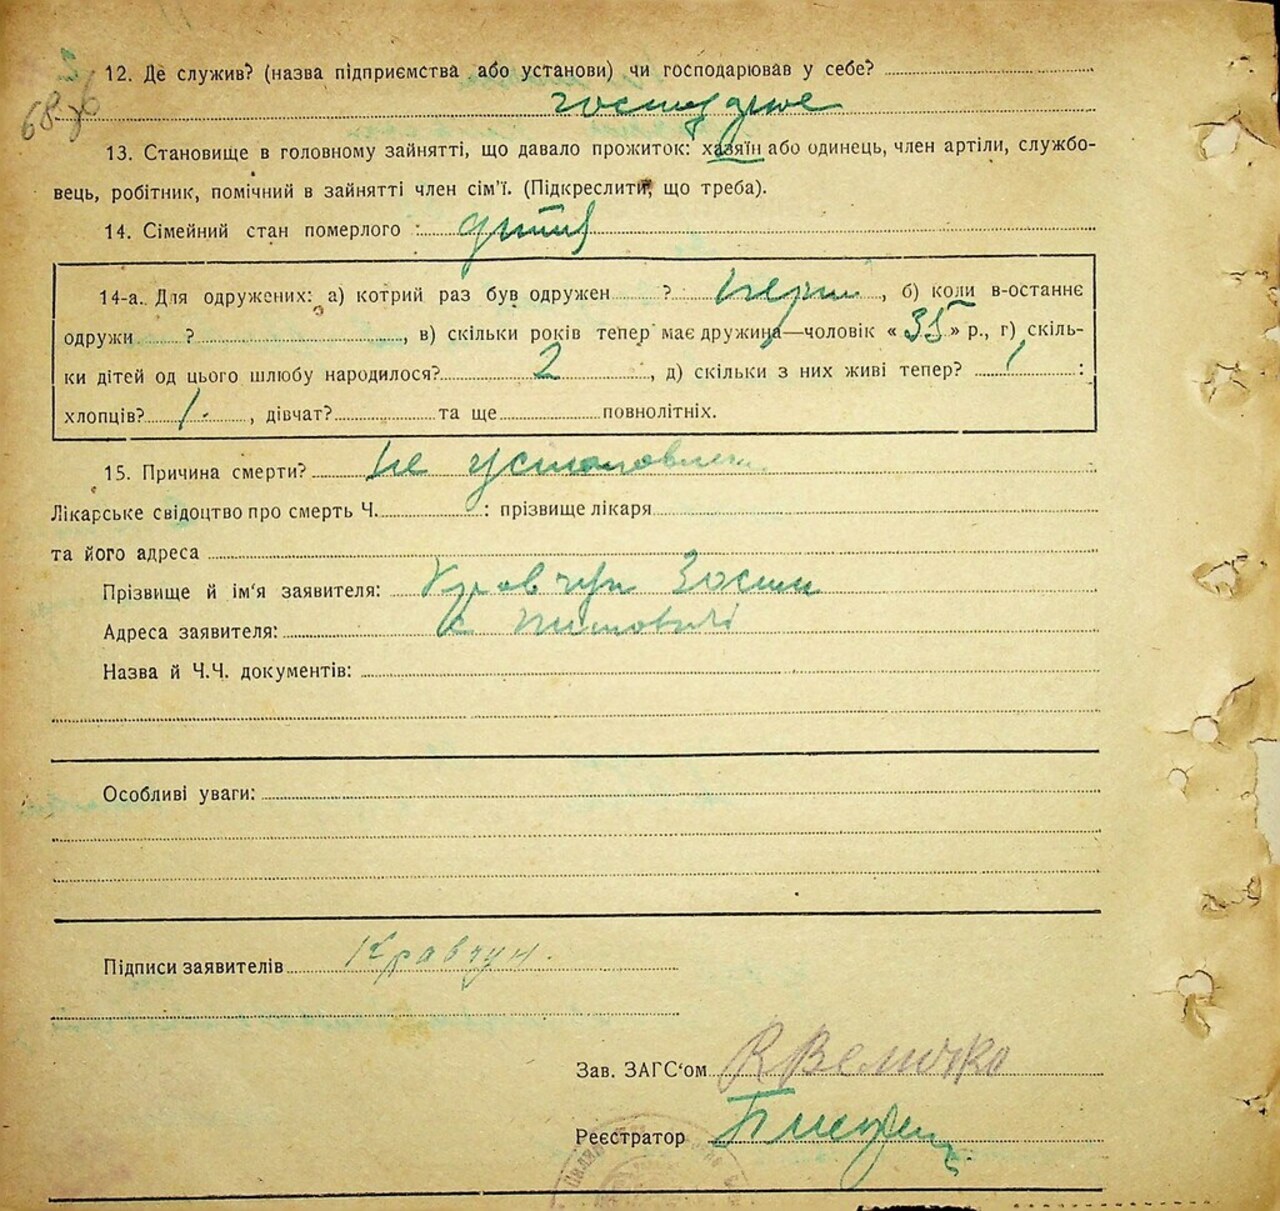 68 зб
12. Де служив? (назва підприємства або установи) чи господарював у себе?
13. Становище в головному зайнятті, що давало прожиток: хазяїн або одинець, член артіли, службо-
вець, робітник, помічний в зайнятті член сім'ї. (Підкреслити, що треба).
14. Сімейний стан померлого : дитя
14-а. Для одружених: а) котрий раз був одружен ? перш, б) коли в-останнє
одружи ? , в) скільки років тепер має дружина—чоловік «35» р., г) скіль-
ки дітей од цього шлюбу народилося? 2 , д) скільки з них живі тепер? 1 :
хлопців? 1. , дівчат? та ще повнолітніх.
15. Причина смерти? не установлена
Лікарське свідоцтво про смерть Ч. : прізвище лікаря
та його адреса
Прізвище й ім'я заявителя: Кравчук
Адреса заявителя: с
Назва й Ч.Ч. документів:
Особливі уваги:
Підписи заявителів Кравчук.
Зав. ЗАГС'ом Величко
Реєстратор